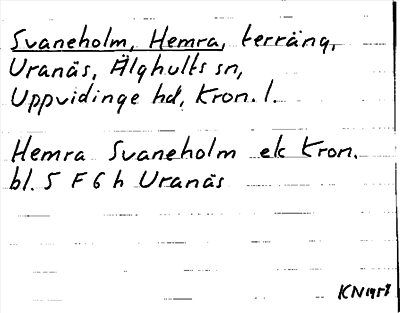 Svaneholm, Hemra, terräng,
Uranäs, Älghults sn,
Uppvidinge hd, Kron. l.
Hemra Svaneholm ek Kron.
bl. 5 F 6 h Uranäs
KN1958